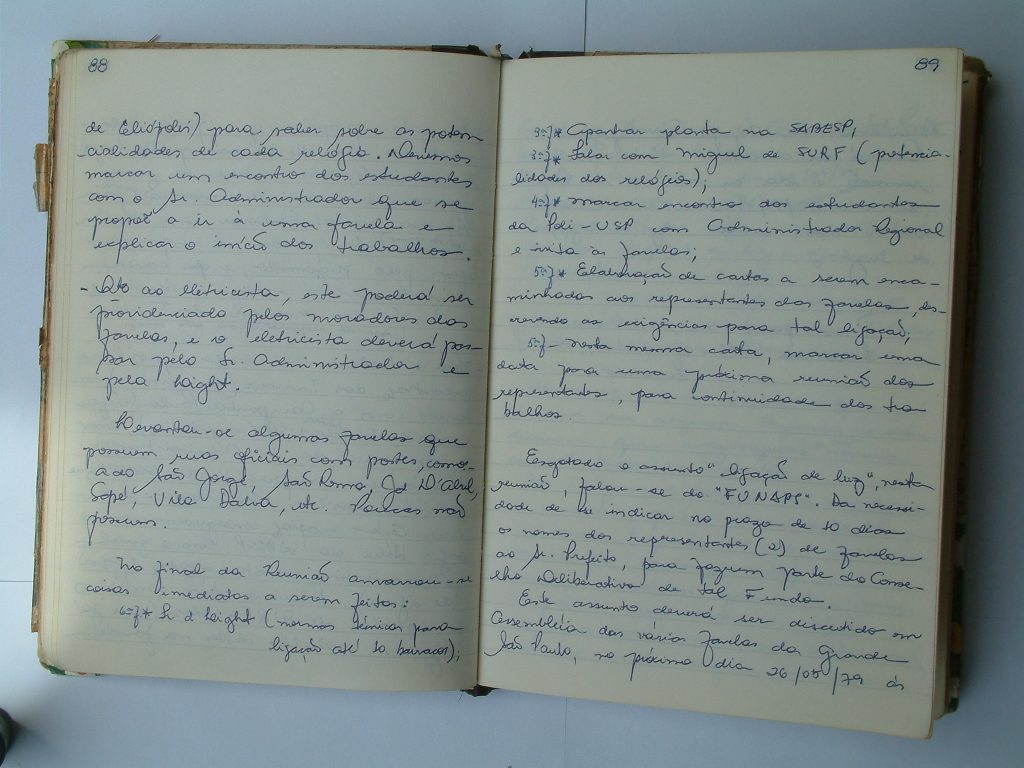 88
de Eliópolis) para saber sobre as poten
cialidades de cada relógio. Devemos
marcar um encontro dos estudantes
com o Sr. Administrador que se
propôs a ir à uma favela e
explicar o início dos trabalhos.
- Qto ao eletricista, este poderá ser
providenciado pelos moradores das
favelas, e o eletricista deverá pas-
sar pelo Sr. Administrador e
pela Light.
Levantou-se algumas favelas que
possuem ruas oficiais com postes, como:
São Jorge, São Remo, Jd D'abril,
Sapé, Vila Dalva, etc. Poucas não
possuem.
No final da Reunião amarrou-se
coisas imediatas a serem feitas:
* Ir à Light (normas técnicas para
ligação até 10 barracos);
89
* Apanhar planta na SABESP;
3=7* Falar com Miguel de SURF (potencia-
lidades dos relógios);
4=7* Marcar encontro dos estudantes
da Poli-USP com Administrador Regional
e visita às favelas;
5=7* Elaboração de cartas a serem enca-
minhadas aos representantes das favelas, es-
crevendo as exigências para tal ligação;
5=7- nesta mesma carta, marcar uma
data para uma próxima reunião dos
representantes, para continuidade dos tra
balhos.
Esgotado o assunto "ligação de luz", nesta
reunião, falou-se do "FUNAPS". Da necessi-
dade de se indicar no prazo de 10 dias
os nomes dos representantes (2) de favelas
ao Sr. Prefeito, para fazerem parte do Conse-
lho Deliberativo de tal Fundo.
Este assunto deverá ser discutido em
Assembléia das várias favelas da Grande
São Paulo, no próximo dia 26/05/79 às